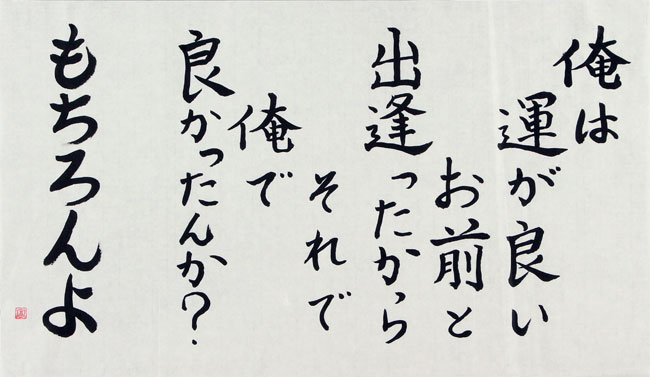 俺は
運が良い
お前と
出逢ったから
それで
俺で
良かったんか？
もちろんよ